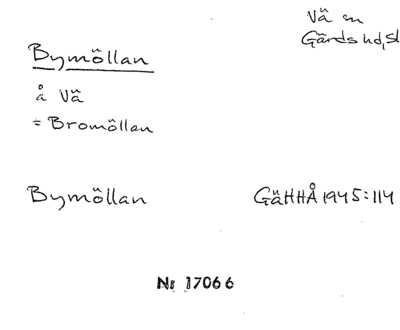 Vä sn
Gärds hd, Sk
Bymöllan
å Vä
= Bromöllan
Bymöllan GäHHÅ 1945:114
Nr 17066